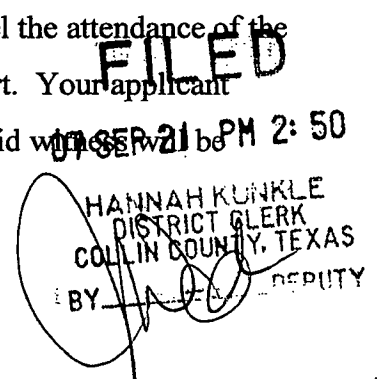 el the attendance of the
FILED
rt. Your applicant
id witness will be
07 SEP 21 PM 2: 50
HANNAH KUNKLE
DISTRICT CLERK
COLLIN COUNTY, TEXAS
BY DEPUTY